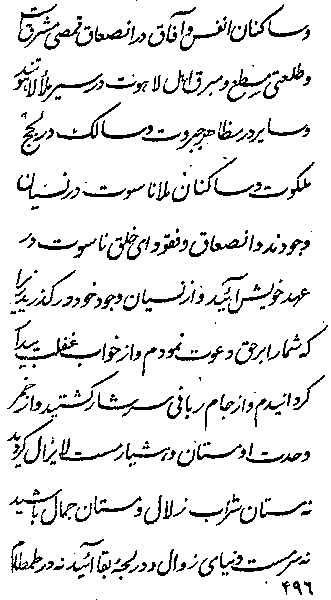 وساکنان انفس و آفاق در انصعاق قمصی مشرق است
وطلعتی مسطع و مبرق اهل لاهوت در سیر طلالا هوتند
وسایر در مظاهر جبروت وسالک در لجج
ملکوت وساکنان ملا ناسوت در نسیان
وجودند و انصعاق و نفود ای خلق ناسوت در
عهد خویش آئید و از نسیان وجود خود در گذرید زیرا
که شما را بر حق دعوت نمودم و از خواب غفلت پیدا
گردانیدم و از جام ربانی سرشار گشتید و از خمر
وحدت اوستان و هشیار مست لایزال گردید
نه مستان شراب زلال و مستان جمال باشید
نه سرمست دنیای زوال و در لجهٔ بقا آئید نه در طمطام
۴۹۶